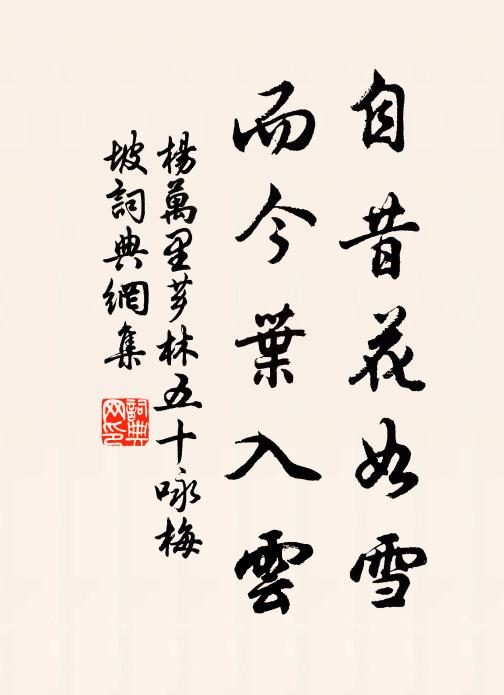 自昔花如雪
而今葉入雲
楊萬里芗林五十咏梅
坡詞典網集
詞典
网印